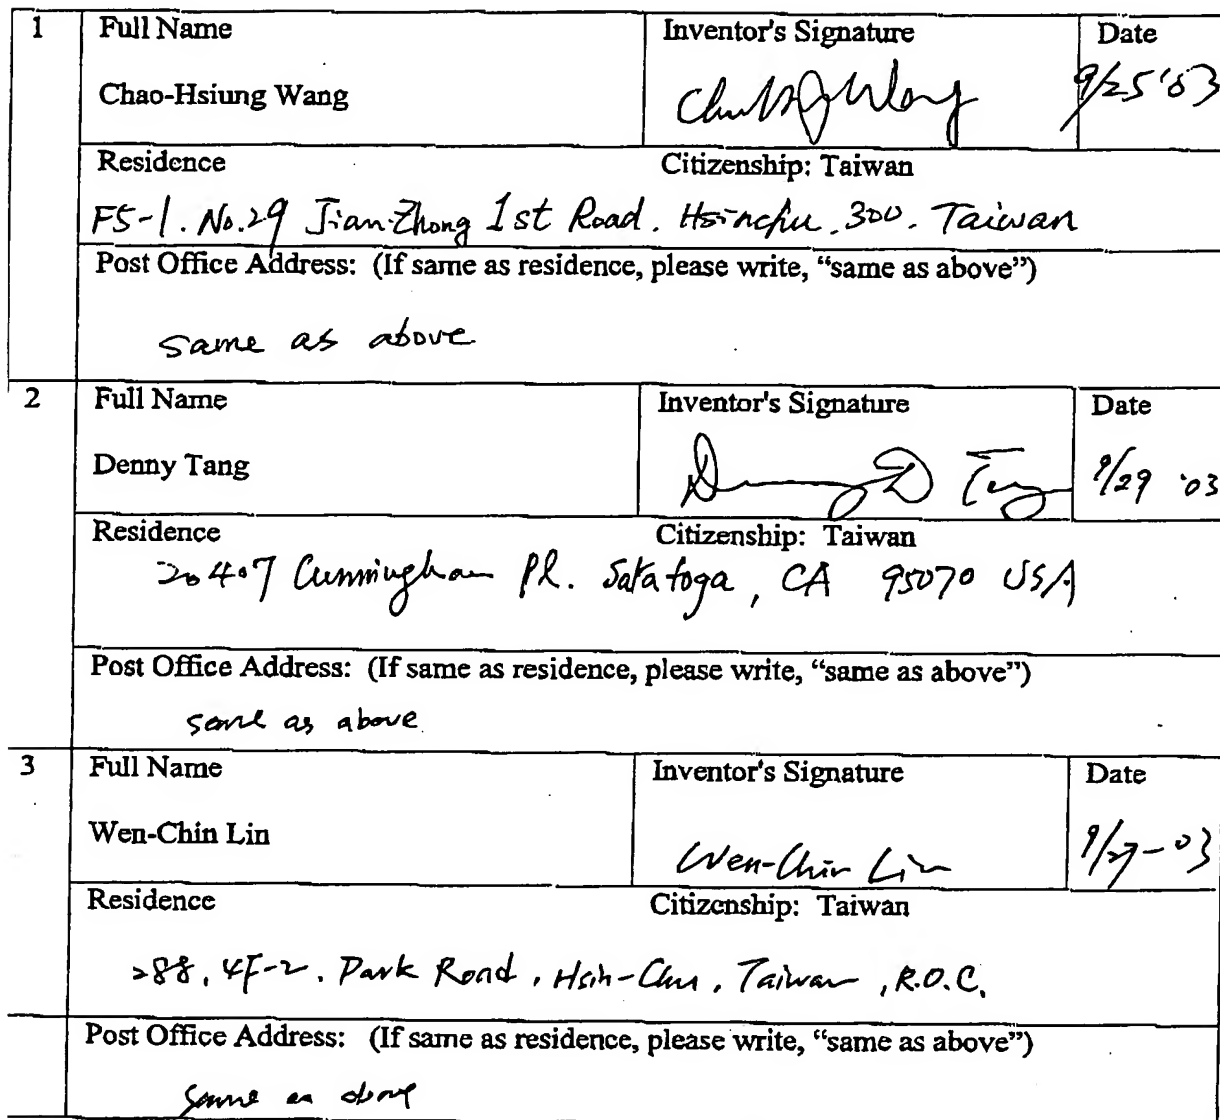 1 Full Name Inventor's Signature Date
Chao-Hsiung Wang 9/25 '03
Residence Citizenship: Taiwan
F5-1. No.29 Jian-Zhong 1st Road. Hsinchu. 300. Taiwan
Post Office Address: (If same as residence, please write, "same as above")
same as above
2 Full Name Inventor's Signature Date
Denny Tang Denny D Tang 9/29 '03
Residence Citizenship: Taiwan
20407 Cunningham Pl. Saratoga, CA 95070 USA
Post Office Address: (If same as residence, please write, "same as above")
same as above
3 Full Name Inventor's Signature Date
Wen-Chin Lin Wen-Chin Lin 9/27-03
Residence Citizenship: Taiwan
288, 4F-2, Park Road, Hsin-Chu, Taiwan, R.O.C.
Post Office Address: (If same as residence, please write, "same as above")
same as above